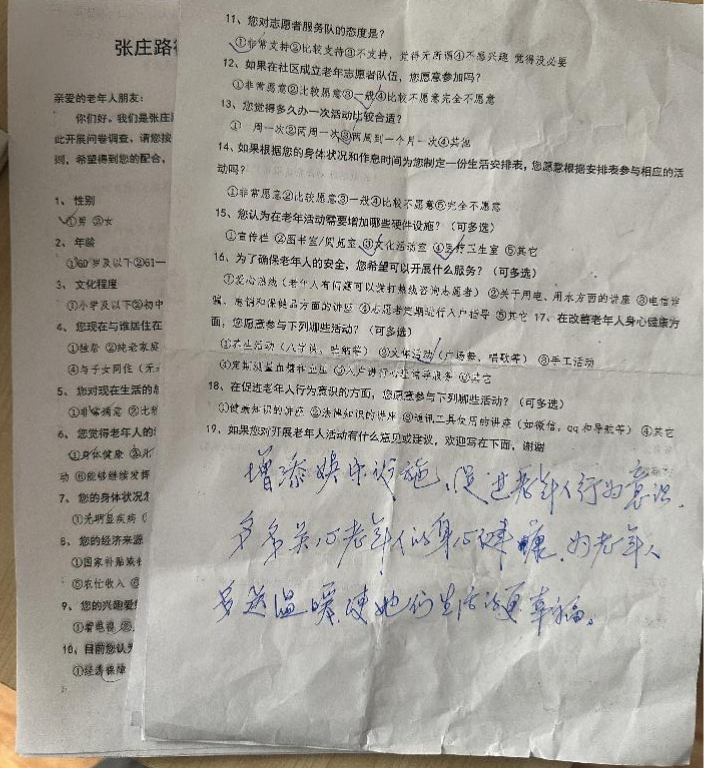 张庄路
亲爱的老年人朋友：
你们好，我们是张庄
此开展问卷调查，请您按
希望得到您的配合，
1、性别
①男 ②女
2、年龄
①60岁及以下②61—
3、文化程度
①小学及以下②初中
4、您现在与谁居住在
①独居 ②纯老家庭
④与子女同住（无
5、您对现在生活的
①非常满意 ②比
6、您觉得老年人的
①身体健康
动 ⑥能够继续发挥
7、您的身体状况
①无明显疾病（
8、您的经济来源
①国家补贴
⑤农仕收入
9、您的兴趣爱
①看电视
10、目前您认为
①经济保障
11、您对志愿者服务队的态度是？
①非常支持②比较支持③不支持，觉得无所谓④不感兴趣 觉得没必要
12、如果在社区成立老年志愿者队伍，您愿意参加吗？
①非常愿意②比较愿意③一般④比较不愿意完全不愿意
13、您觉得多久办一次活动比较合适？
① 一周一次②两周一次③两周到一个月一次④其他
14、如果根据您的身体状况和作息时间为您制定一份生活安排表，您愿意根据安排表参与相应的活
动吗？
①非常愿意②比较愿意③一般④比较不愿意⑤完全不愿意
15、您认为在老年活动需要增加哪些硬件设施？（可多选）
①宣传栏 ②图书室/阅览室 ③文化活动室 ④医疗卫生室 ⑤其它
16、为了确保老年人的安全，您希望可以开展什么服务？（可多选）
①爱心热线（老年人有问题可以拨打热线咨询志愿者） ②关于用电、用水方面的讲座 ③电信诈
骗、传销和保健品方面的讲座 ④志愿者定期进行入户指导 ⑤其它 17、在改善老年人身心健康方
面，您愿意参与下列哪些活动？（可多选）
①养生活动（八字操、哈哈等） ②文体活动（广场舞、唱歌等） ③手工活动
④定期测量血糖和血压 ⑤入户进行心理辅导服务 ⑥其它
18、在促进老年人行为意识的方面，您愿意参与下列哪些活动？（可多选）
①健康知识的讲座 ②法律知识的讲座 ③通讯工具使用的讲座（如微信，qq和导航等） ④其它
19、如果您对开展老年人活动有什么意见或建议，欢迎写在下面，谢谢
增添娱乐设施、促进老年人行为意识，
多多关心老年人的身心健康，为老年人
多送温暖，使她们生活的更幸福。